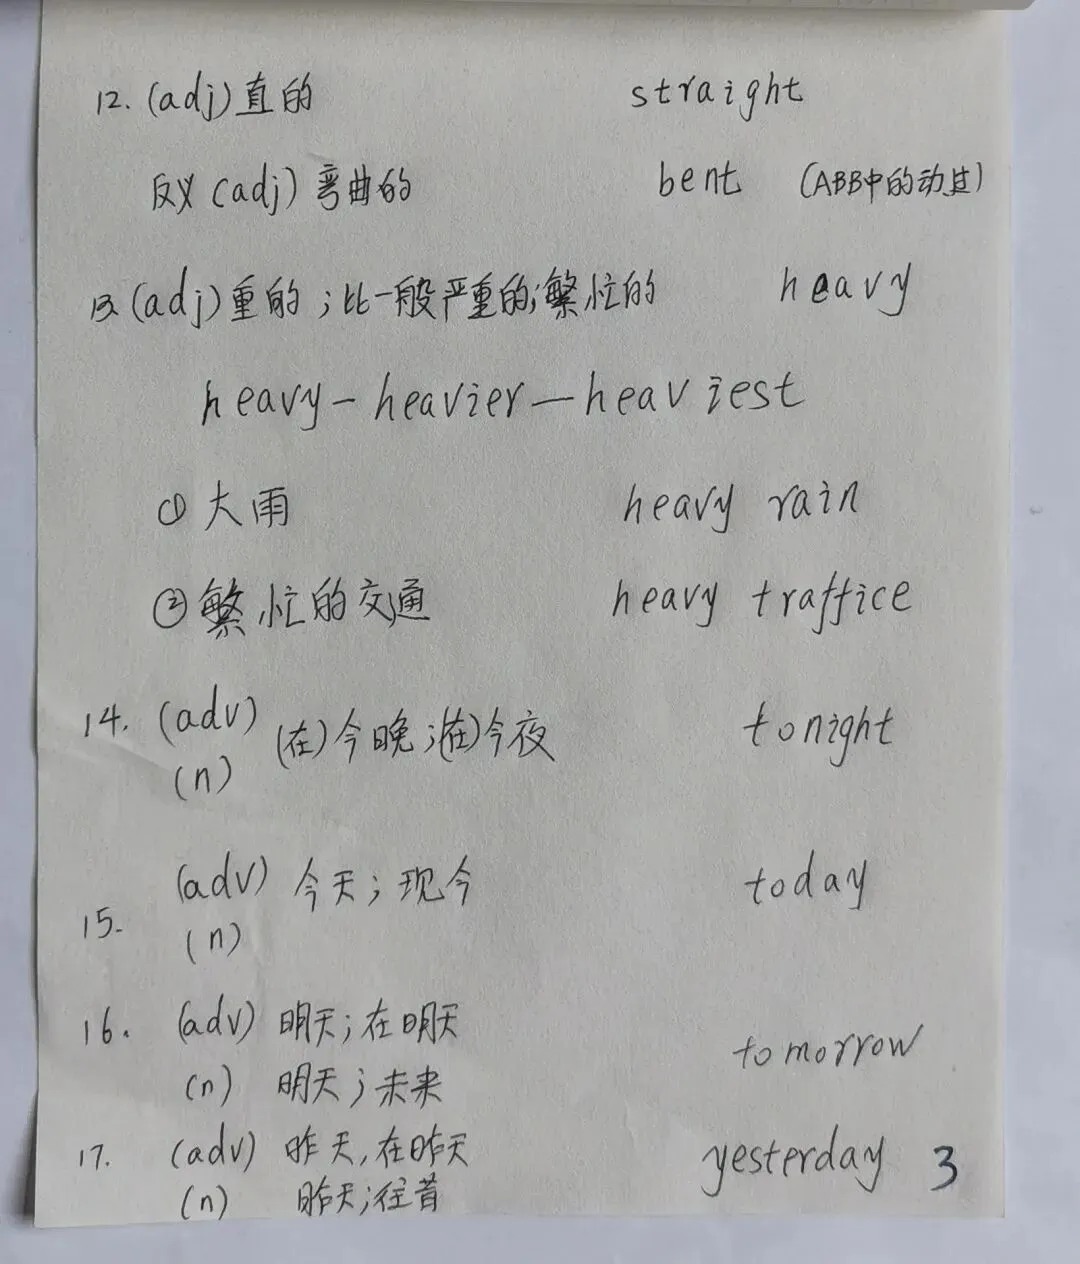 12. (adj) 直的 straight
反义 (adj) 弯曲的 bent (ABB中的动过)
13. (adj) 重的;比一般严重的;繁忙的 heavy
heavy-heavier-heaviest
① 大雨 heavy rain
② 繁忙的交通 heavy traffice
14. (adv) (在)今晚;(在)今夜 tonight
(n)
(adv) 今天;现今 today
15.
(n)
16. (adv) 明天;在明天 tomorrow
(n) 明天;未来
17. (adv) 昨天,在昨天 yesterday 3
(n) 昨天;往昔